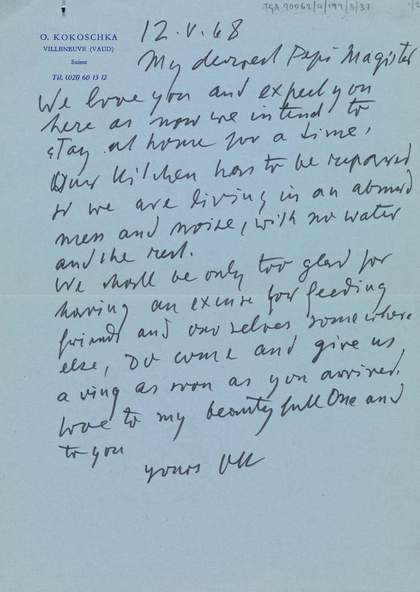 TGA 20062/4/199/3/37
O. KOKOSCHKA
VILLENEUVE (VAUD)
Suisse
Tél. (021) 60 13 12
12. V. 68
My dearest Pepi Magister
We love you and expect you
here as now we intend to
stay at home for a time.
Our kitchen has to be repaired
so we are living in an absurd
mess and noise, with no water
and the rest.
We shall be only too glad for
having an excuse for feeding
friends and ourselves somewhere
else, Do come and give us
a ring as soon as you arrived.
Love to my beautyfull One and
to you
yours OK